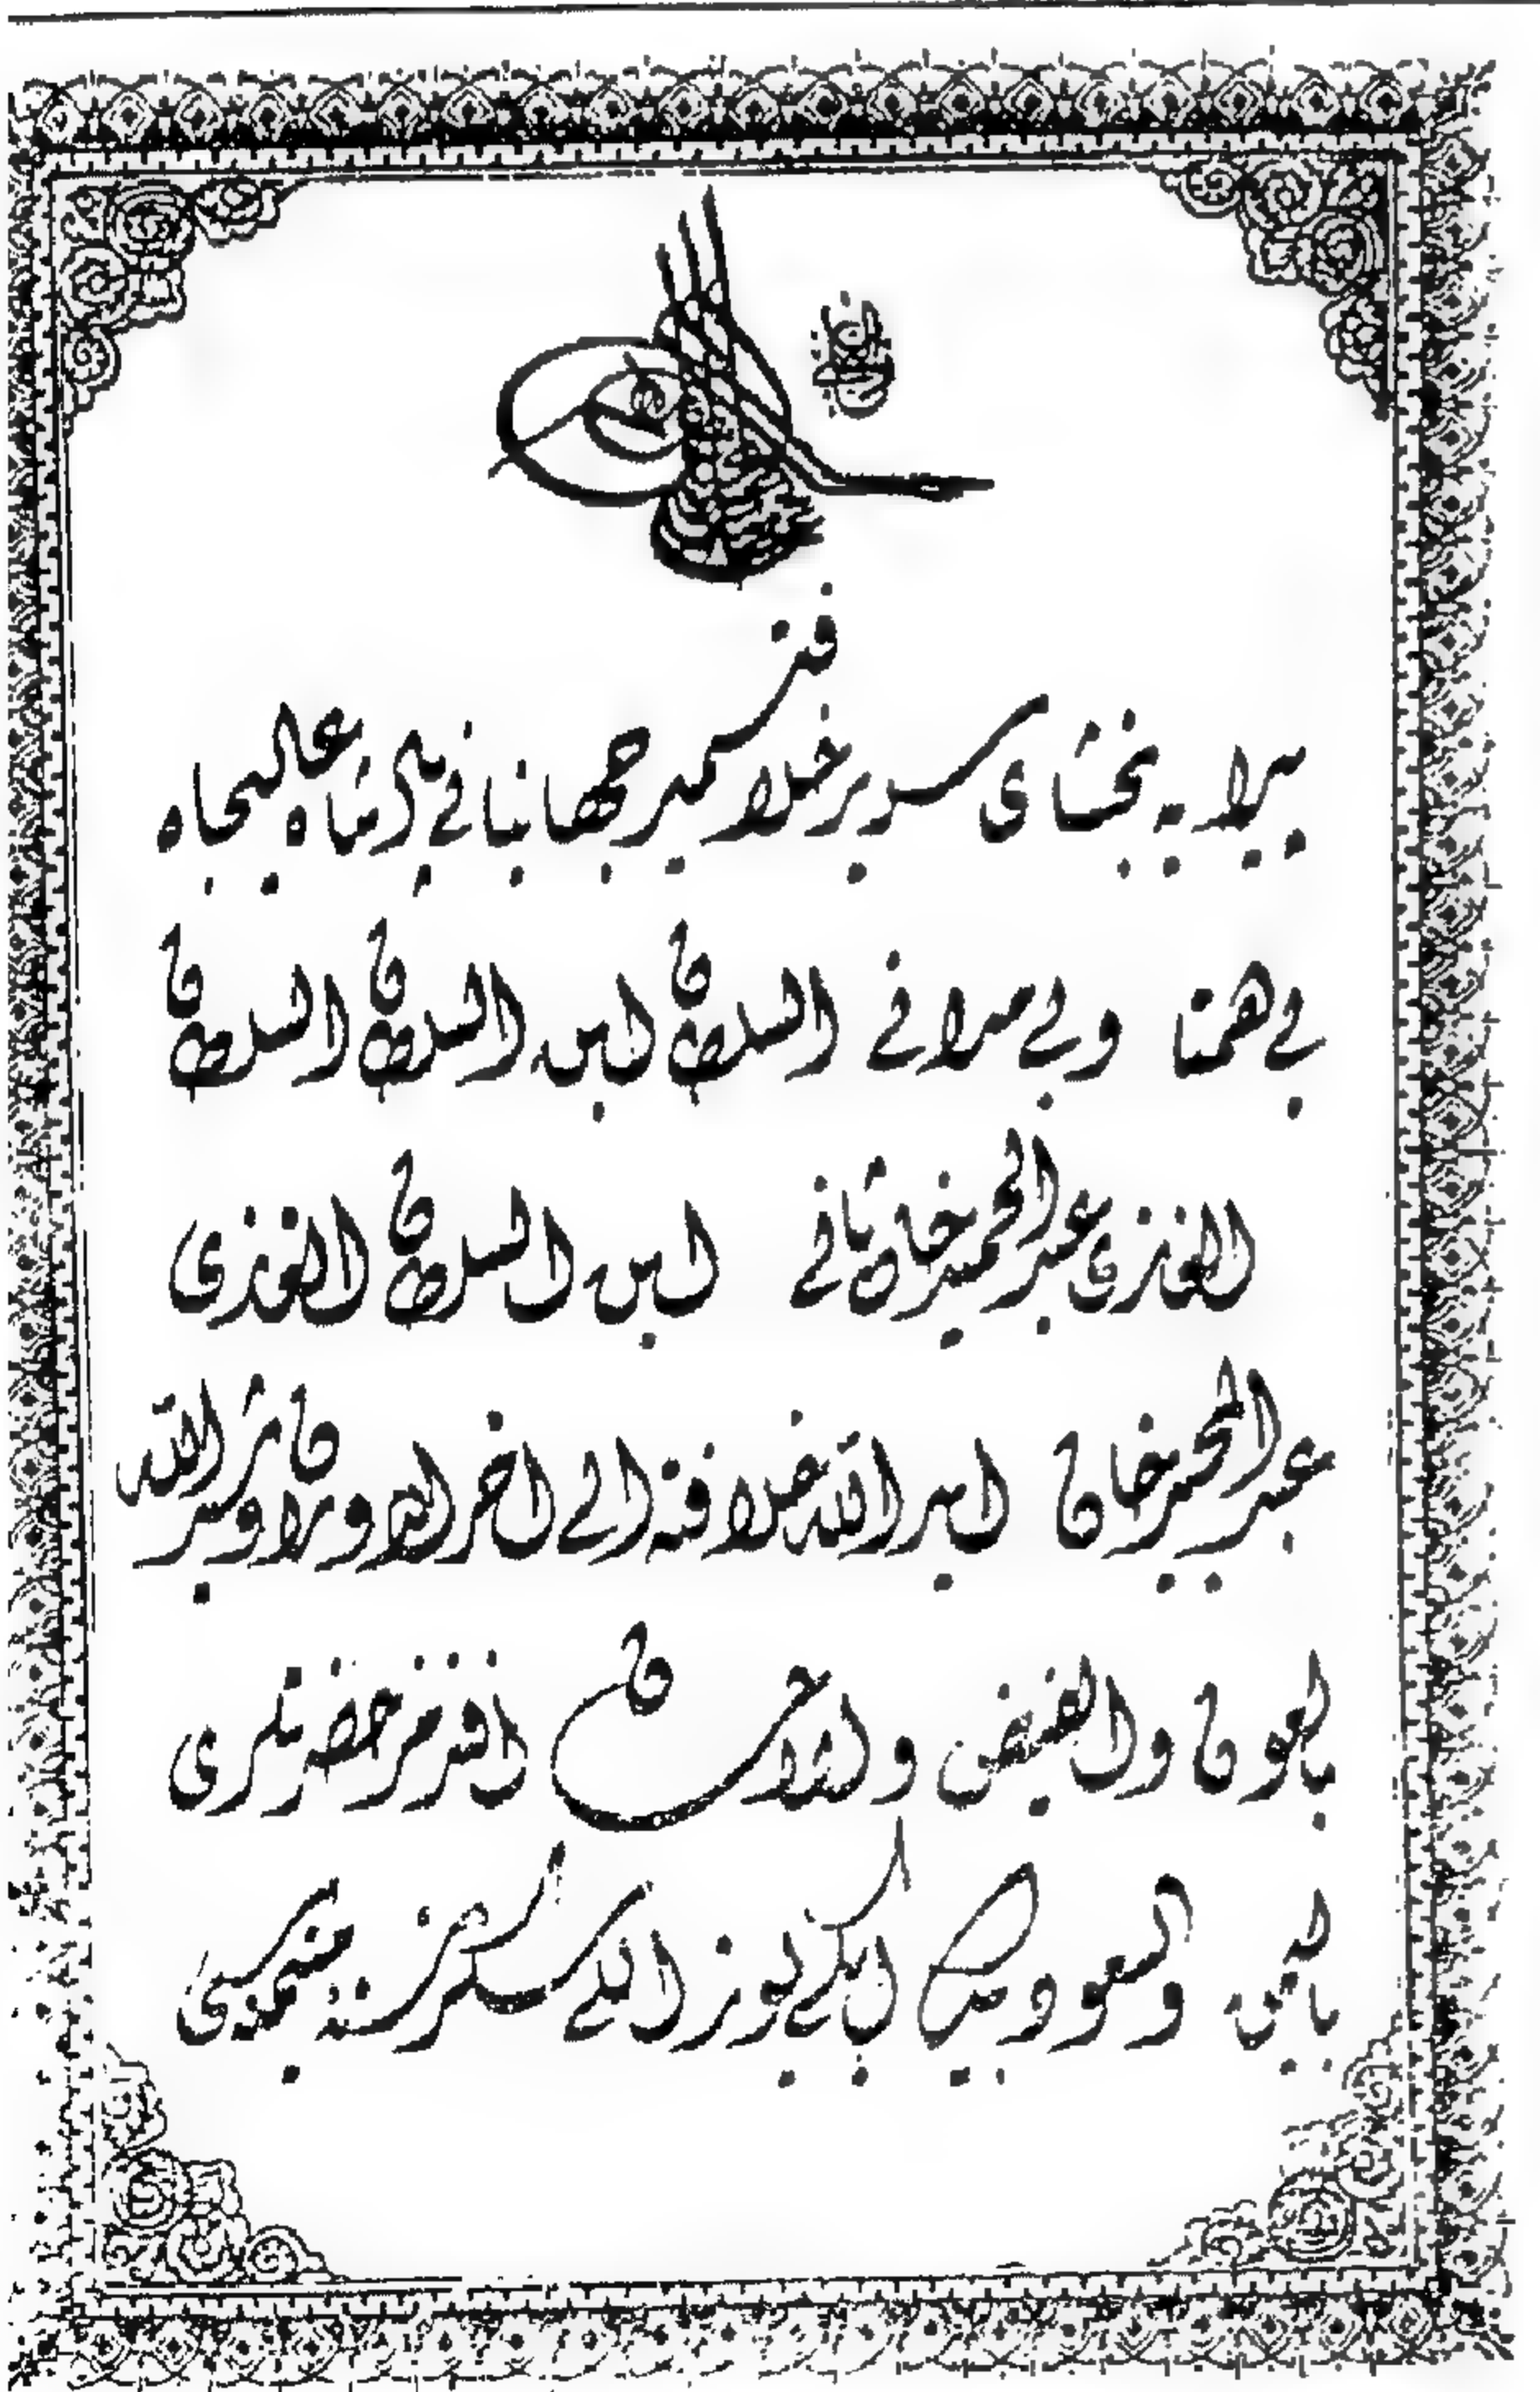 پیرایه بخشای سریر خلافت جهانبانی پادشاه عالیجاه
بی همتا وبی مدانی السلطان ابن السلطان السلطان
الغازی عبد الحمید خان ثانی ابن السلطان الغازی
عبد المجید خان اید الله خلافته الی اخر الدوران الله
بالعون والفیض والاحسان افندمز حضرتلری
بالیمن والسعود بیك ایكی یوز اللی سكز سنه